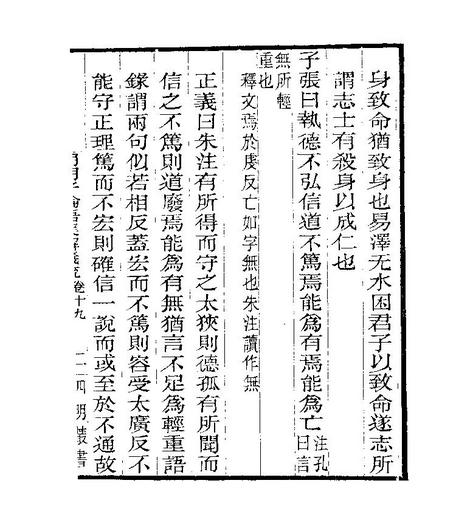 身致命猶致身也易澤无水困君子以致命遂志所
謂志士有殺身以成仁也
子張曰執德不弘信道不篤焉能為有焉能為亡注孔
曰言
無所輕
重也
釋文焉於虔反亡如字無也朱注讀作無
正義曰朱注有所得而守之太狹則德孤有所聞而
信之不篤則道廢焉能為有無猶言不足為輕重語
錄謂兩句似若相反蓋宏而不篤則容受太廣反不
能守正理篤而不宏則確信一說而或至於不通故
論語
卷十九
四明叢書